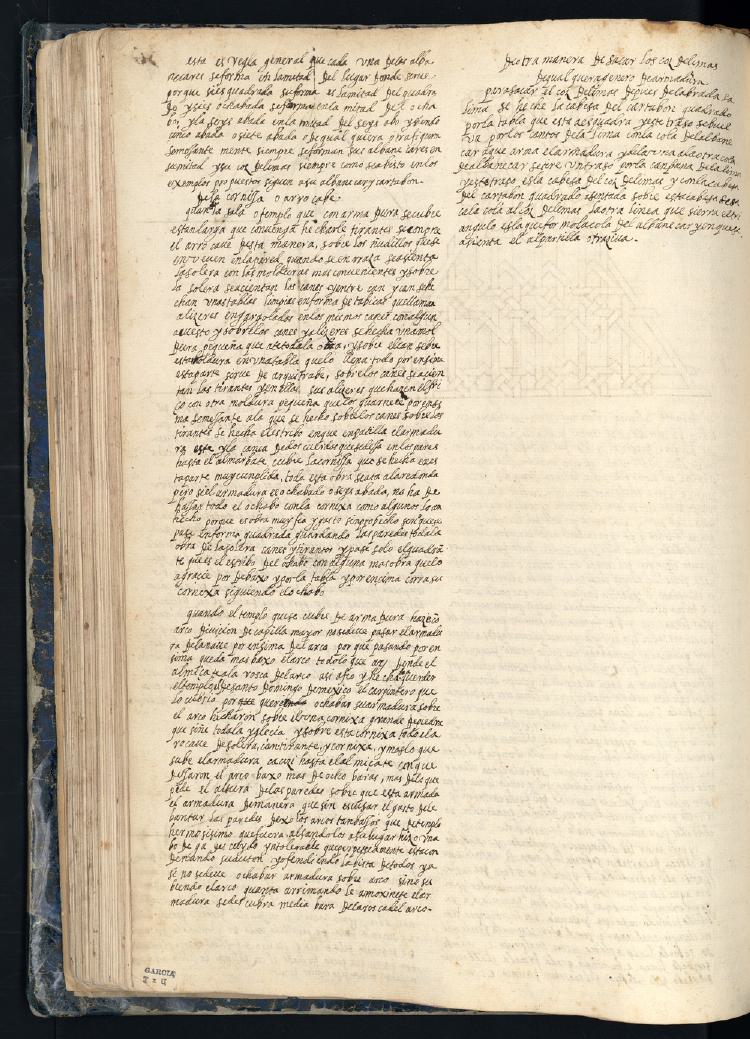 esta es regla general que cada una delas alba
necares se forma en la mitad del lugar donde sirue
porque si es quadrada su forma es la mitad del quadra
do y si es ochabada se forma en la mitad del ocha
bo, y la seys abada en la mitad del seys abo y siendo
cinco abada o siete abada o de qual quiera otra figura
semejante mente siempre se forman sus albanecares en
su mitad y su coz de limas siempre como se a bisto en los
exemplos propuestos siguen a su albanecar y cartabon
de la cornissa o arrocabe
quando la sala o templo que con armadura se cubre
es tan larga que conuenga hecharle tirantes siempre
el arrocaue desta manera, sobre los nudillos que se
en la pared quando se enrasa se asienta
la solera con las molduras mas conuenientes y sobre
la solera se acientan los canes y entre can y can se he
chan unas tablas limpias en forma de tabicas que llaman
alizeres engargolados en los mismos canes con algun
y sobre los canes y alizeres se hecha una mol
dura pequeña que ate toda la obra, y sobre ella se
esta moldura en una tabla que lo llena todo por ensima
esta parte sirue de arquitrabe, sobre los canes se acien
tan los tirantes y en ellos sus alizeres que hazen el fri
so con otra moldura pequeña que los guarnece por ensi
ma semejante a la que se hecho sobre los canes sobre los
tirantes se hecha el estribo en que enpatilla el armadu
ra y la
hasta el almarbate cubre la cornissa que se hecha en es
ta parte muy cumplida, toda esta obra se ata a la redonda
pero si el armadura es ochabada o seys abada, no ha de
bajar todo el ochabo con la cornixa como algunos lo an
hecho porque es obra muy fea y gasto sin probecho sino que se
pase en forma quadrada guardando las paredes toda la
obra de la solera canes y tirantes y pase solo el quadran
te que es el estribo del ochabo con alguna mas obra que lo
agracie por debaxo y por la tabla y por encima corra su
cornixa siguiendo el ochabo
quando el templo que se cubre de armadura haze
arco diuicion de capilla mayor no se deue pasar el armadu
ra de la naue por ensima del arco porque pasando por en
sima queda mas baxo el arco todo lo que ay desde el
almicate a la rosca del arco asi afeo y hecha a perder
el templo de santo Domingo de mexico el carpintero que
lo cubrio por ochabar su armadura sobre
el arco hicharon sobre el una cornixa grande de piedra
que siñe toda la yglecia y sobre esta cornixa todo el a
rrocaue de solera, can, tirante, y cornixa, y mas lo que
sube el armadura hasta el almicate con que
dejaron el arco baxo mas de ocho baras, mas de lo que
pide el altura de las paredes sobre que esta armada
el armadura de manera que sin escusar el gasto de le
bantar las paredes dexo los arcos tan bajos que de templo
hermosisimo que fuera alsandolos a su lugar hizo una
bobeda y yntolerable que perpetuamente esta con
denando su autor y ofendiendo la bista de todos y a
si no se deue ochabar armadura sobre arco sino su
biendo el arco quanto arrimando le amoxinete el ar
madura se descubra media bara de la rosca del arco.
De otra manera de sacar los coz de limas
de qual quiera genero de armadura
para sacar al coz de limas depues de labrada la
lima se heche la cabesa del cartabon quadrado
por la tabla que esta a esquadra y este traso se buel
ua por los cantos de la lima con la cola del albane
car que arma el armadura y de la una a la otra cola
de albanecar se tire un traso por la campana de la lima
y este traso es la cabesa del coz de limas y con la cabesa
del cartabon quadrado asentado sobre esta cabesa de
la cola al coz de limas la otra linea que sierra el tri
angulo es la que formo la cola del albanecar y en que se
asienta el alpartilla otra lima.
GARCIA